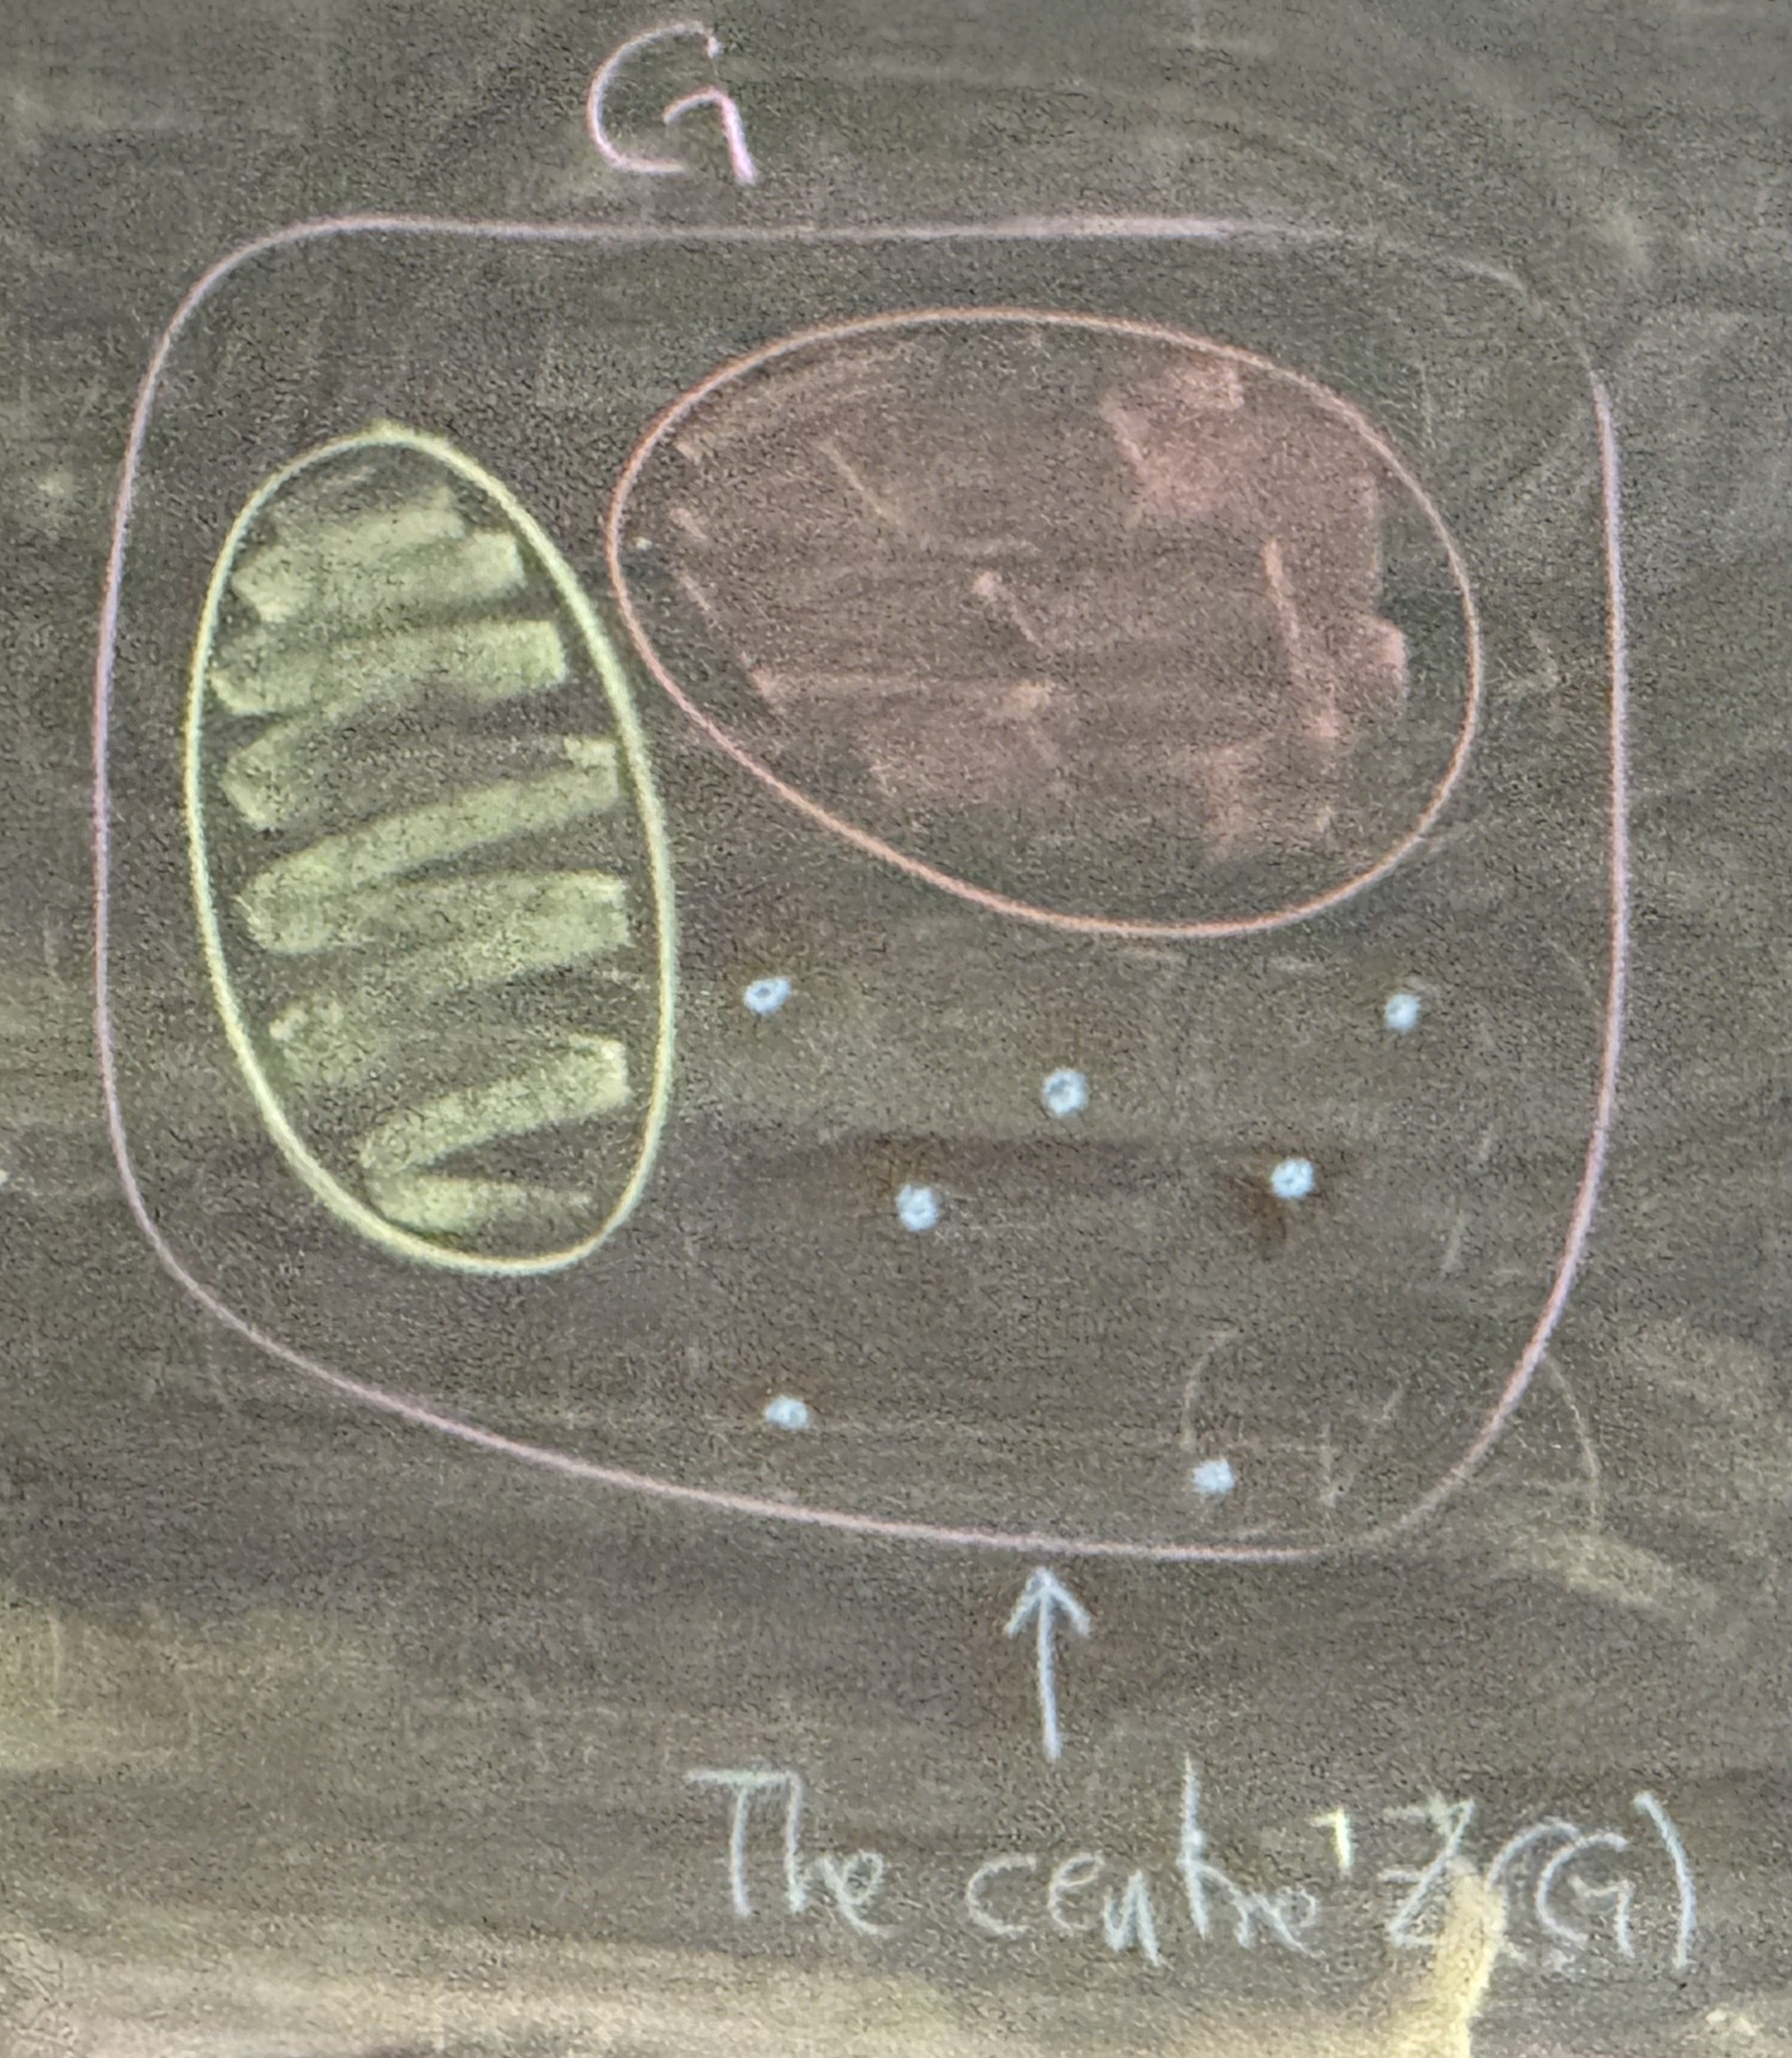 G
The centre Z(G)